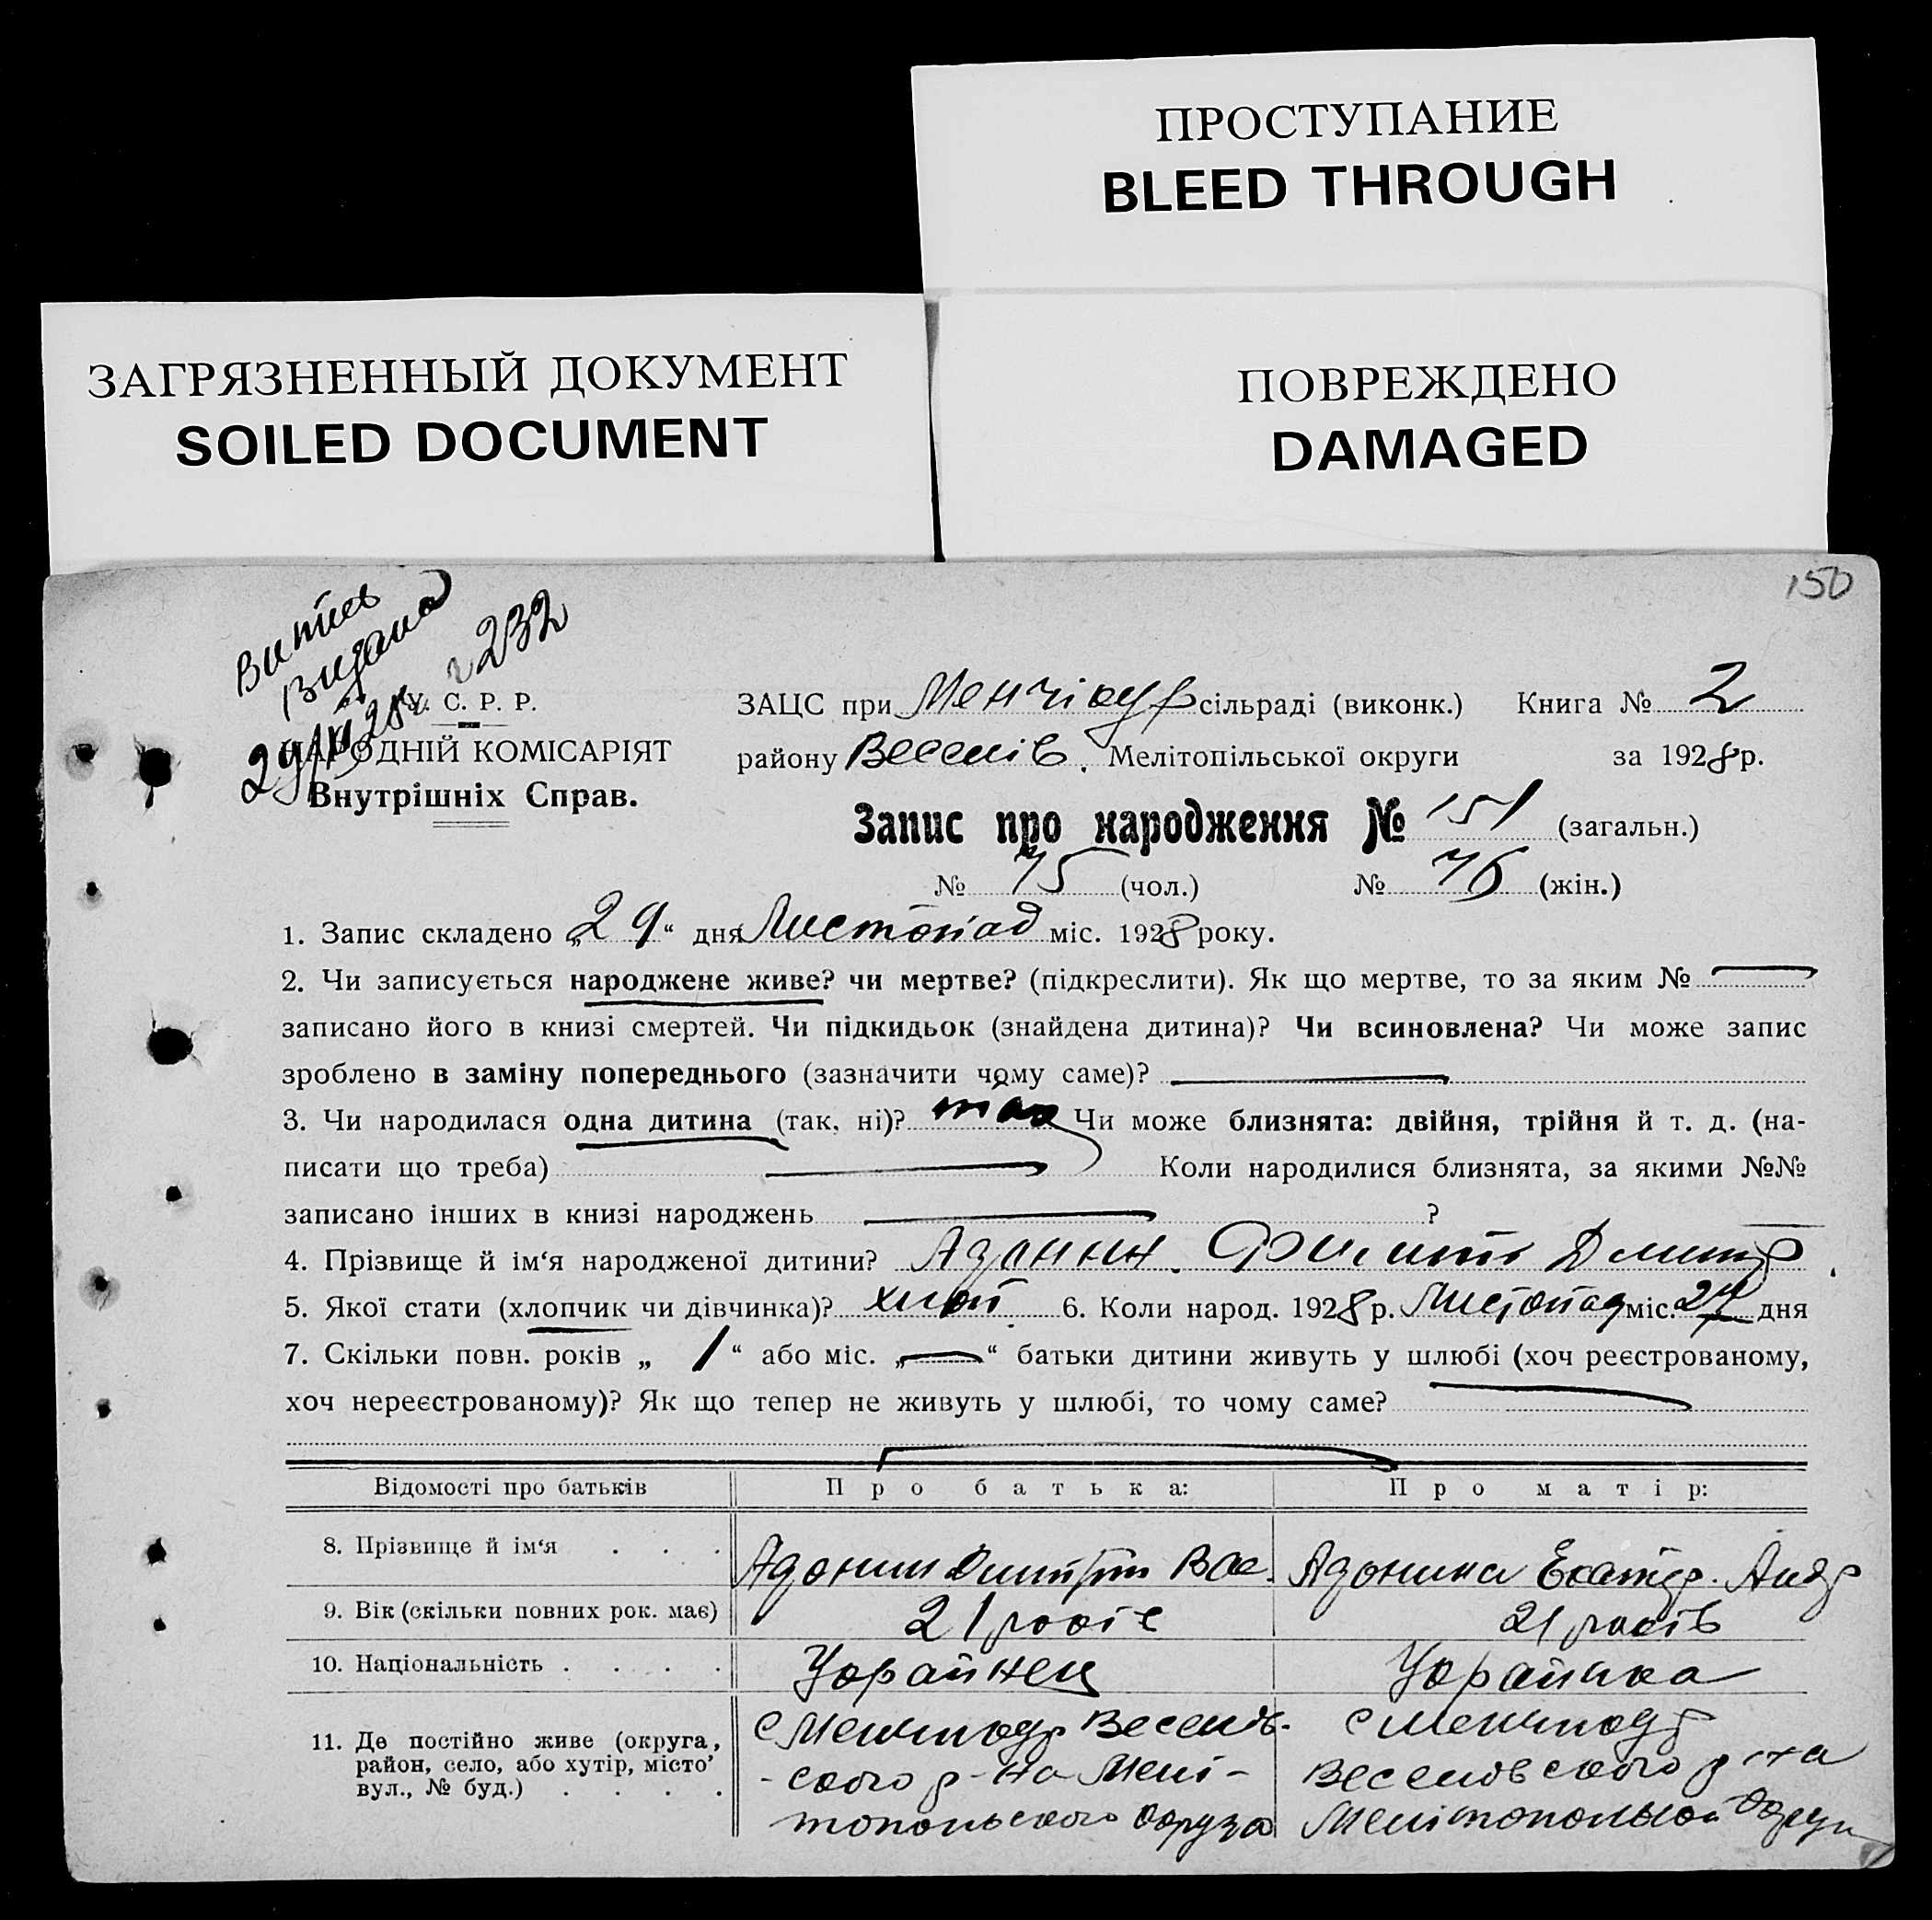 ПРОСТУПАНИЕ
BLEED THROUGH
ЗАГРЯЗНЕННЫЙ ДОКУМЕНТ
SOILED DOCUMENT
ПОВРЕЖДЕНО
DAMAGED
150
Витяг
232
У. С. Р. Р.
НАРОДНІЙ КОМІСАРІЯТ
Внутрішніх Справ.
ЗАЦС при сільраді (виконк.) Книга № 2
району Веселів. Мелітопільської округи за 1928 р.
Запис про народження № 151 (загальн.)
№ 75 (чол.) № 76 (жін.)
1. Запис складено „29“ дня Листопад міс. 1928 року.
2. Чи записується народжене живе? чи мертве? (підкреслити). Як що мертве, то за яким №
записано його в книзі смертей. Чи підкидьок (знайдена дитина)? Чи всиновлена? Чи може запис
зроблено в заміну попереднього (зазначити чому саме)?
3. Чи народилася одна дитина (так, ні)? так Чи може близнята: двійня, трійня й т. д. (на-
писати що треба) Коли народилися близнята, за якими №№
записано інших в книзі народжень ?
4. Прізвище й ім‘я народженої дитини? Адонин Дмитр
5. Якої стати (хлопчик чи дівчинка)? 6. Коли народ. 1928 р. Листопад міс. 27 дня
7. Скільки повн. років „ 1 “ або міс. „ — “ батьки дитини живуть у шлюбі (хоч реєстрованому,
хоч нереєстрованому)? Як що тепер не живуть у шлюбі, то чому саме?
Відомості про батьків Про батька: Про матір:
8. Прізвище й ім‘я . . . Адонин Димитрий Вас. Адонина Екатер. Андр
9. Вік (скільки повних рок. має) 21 років 21 років
10. Національність . . . . Украйнец Украйнка
11. Де постійно живе (округа, район, село, або хутір, місто’ вул., № буд.) . . . .
Веселов-
-ского р-на Мелі-
топольского округа
Веселовского р-на